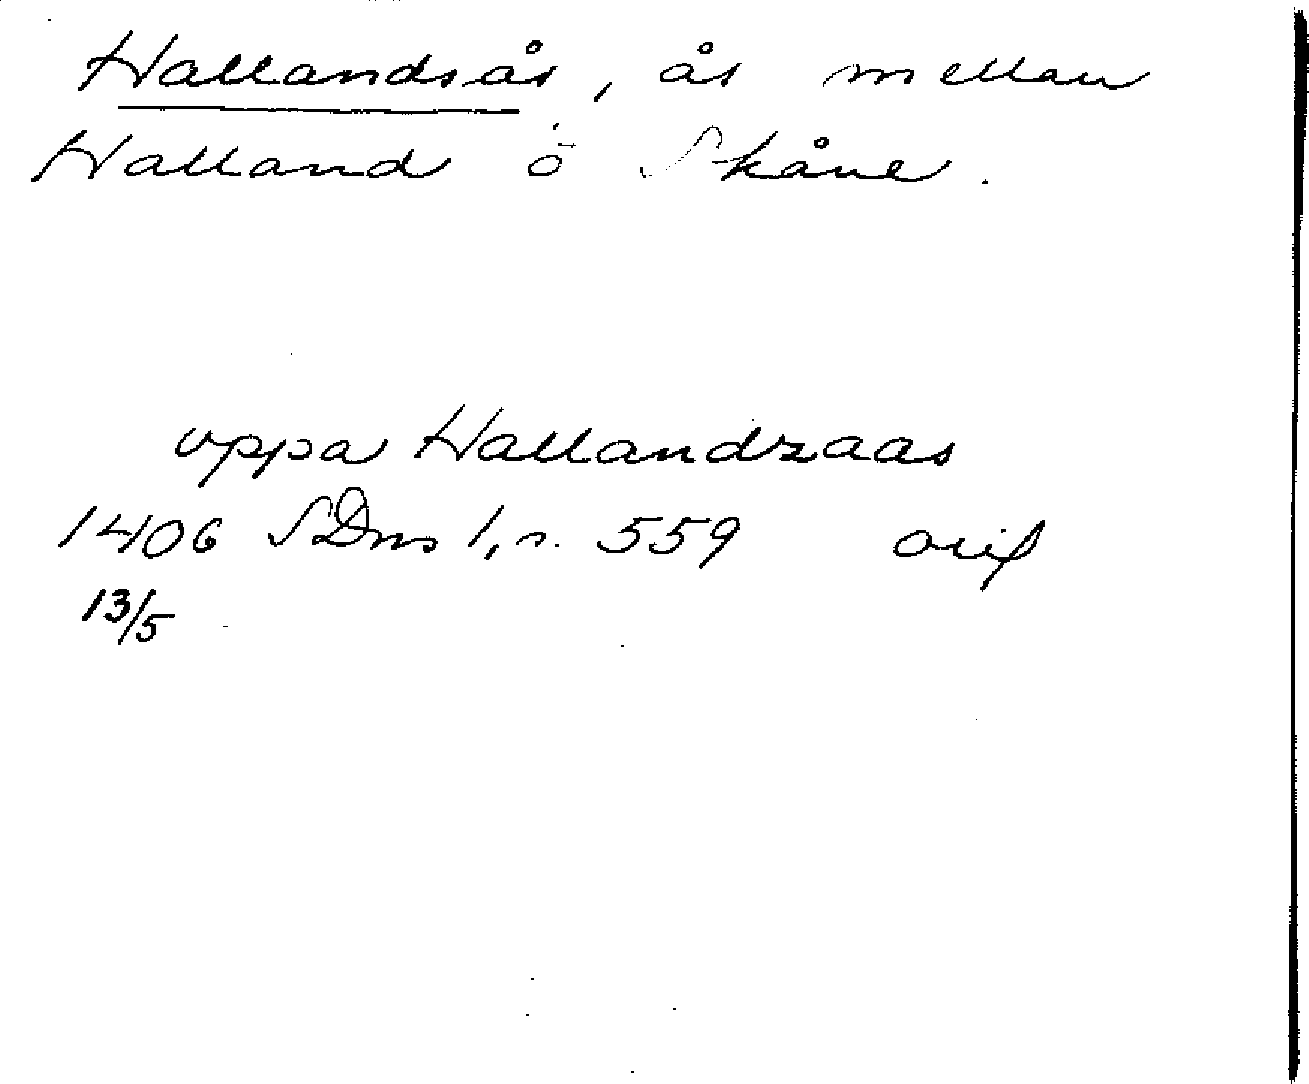 Hallandsås, ås mellan
Halland o Skåne.
uppa Hallandzaas
1406 SDns 1, s. 559 orig
13/5